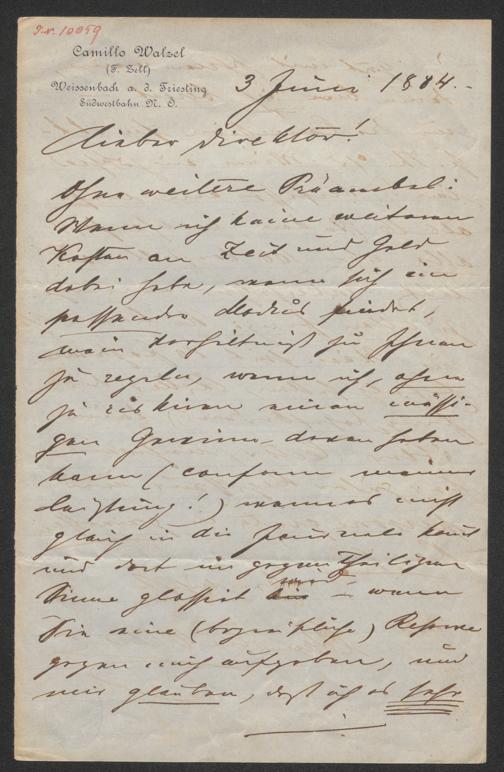 I.N. 10059
Camillo Walzel
(F. Zell)
Weissenbach a. d. Triesting
Südwestbahn N. Ö.
3 Juni 1884.-
Lieber Direktor!
Ohne weitere Präambel:
Wenn ich keine weiteren
Kosten an Zeit und Geld
dabei habe, wenn sich ein
passender Modus findet,
mein Verhältniß zu Ihnen
zu regeln, wenn ich, ohne
zu riskiren einen mässi-
gen Gewinn davon haben
kann (conform meiner
Leistung!) wenn es nicht
gleich in die Journale kommt
und dort im gegentheiligen
Sinne glossirt wird – wenn
Sie eine (begreifliche) Reserve
gegen mich aufgeben, und
mir glauben, daß ich es sehr